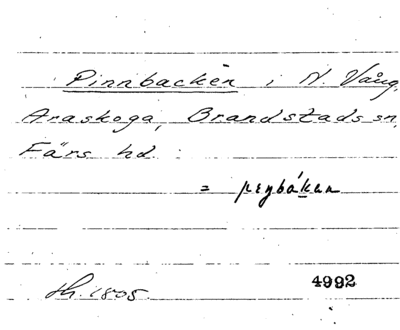 Pinnbacken i N. Vång,
Araskoga, Brandstads sn,
Färs hd
=
Sk. 1805. 4992